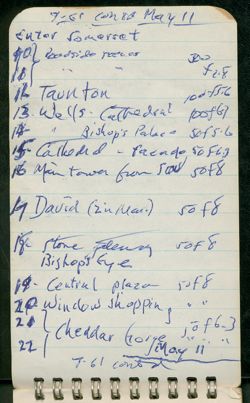 7-61 contd May 11
Enter Somerset
10 Roadside
11 " " f 2.8
12 Taunton 100f5.6
13 Wells - Cathedral 100f63
14 " Bishop's Palace 50f5.6
15 Cathedral - Facade 50f63
16 Main tower from 50f8
17 David 50f8
18 Stone 50f8
Bishop's Eye
19 Central plaza 50f8
20 Window shopping " "
21 Cheddar Gorge 50f6.3
22 May 11
7-61 contd